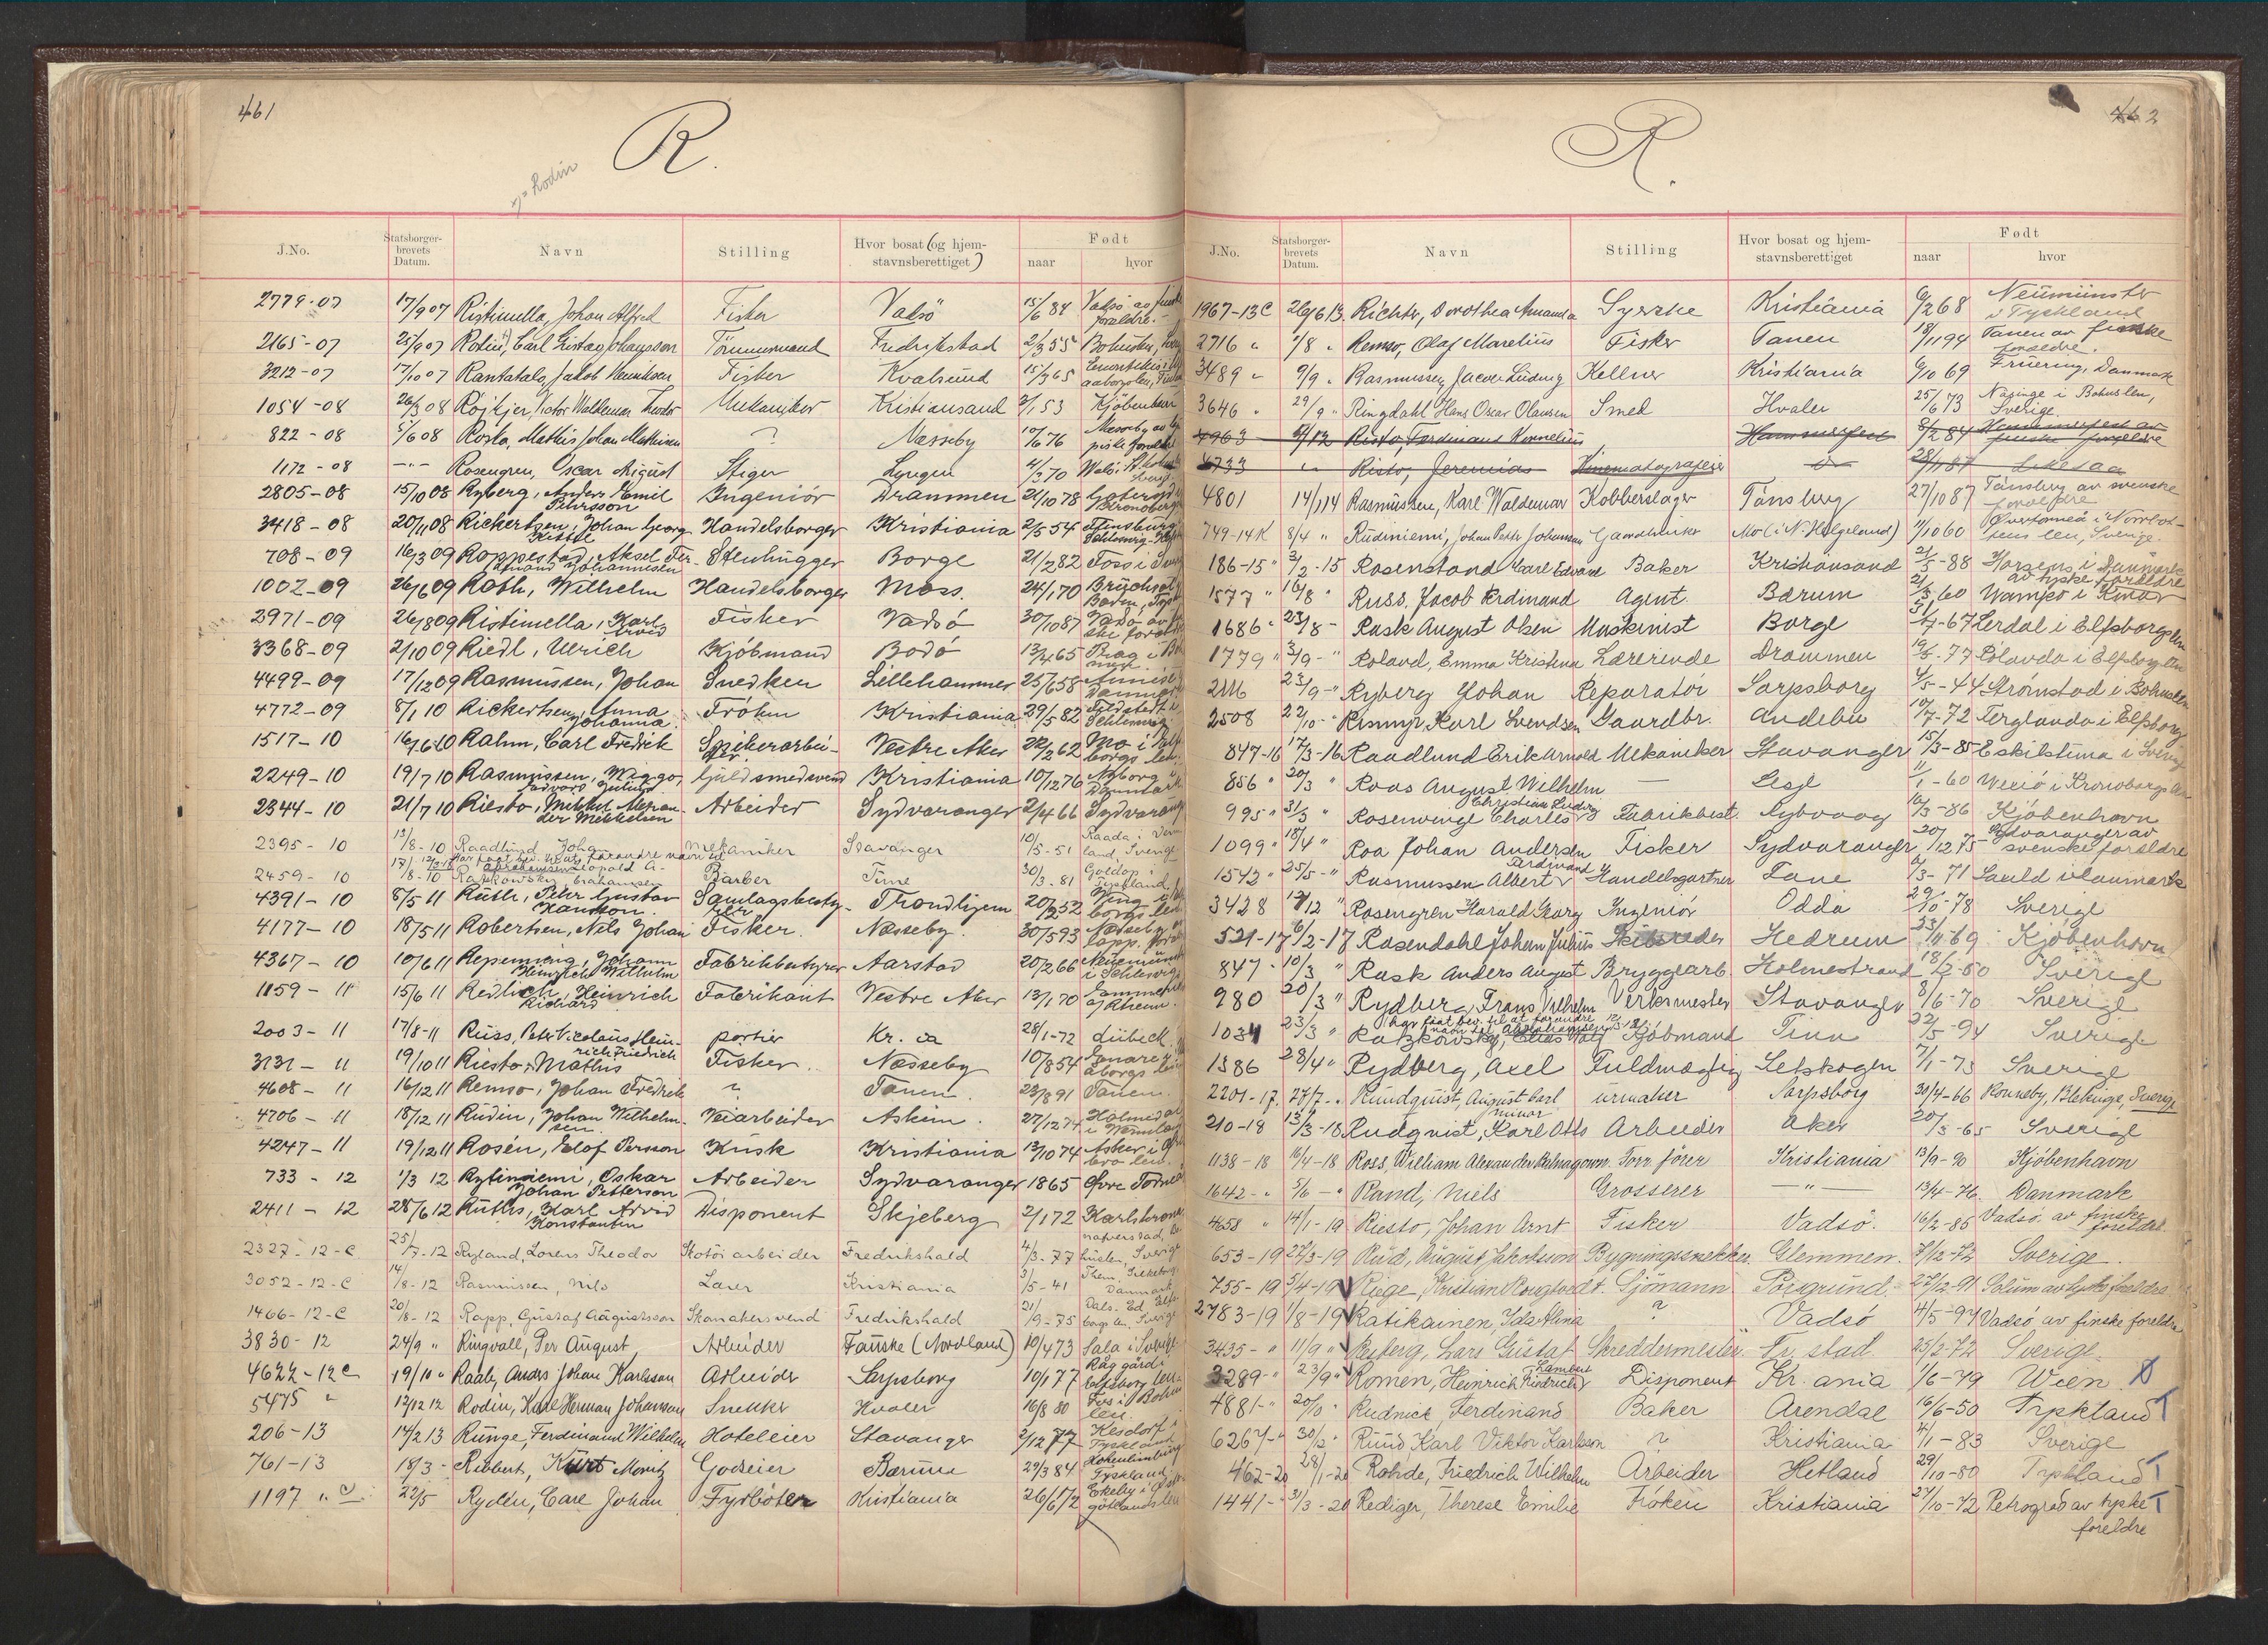 461
R.
Rodin
J.No. Statsborgerbrevets Datum. Navn Stilling Hvor bosat (og hjemstavnsberettiget) Født naar hvor
2779-07 17/9 07 Ristimella, Johan Alfred Fisker Vadsö 15/6 84 Vadsö av finske forældre.
2165-07 25/9 07 Rodin, Carl Gustav Johansson Tömmermand Fredrikstad 2/3 55 Bohuslen,
3212-07 17/10 07 Rantatalo, Jakob Henriksen Fisker Kvalsund 15/3 65
1054-08 26/3 08 Röjkjer, Victor Waldemar Theodor Mekaniker Kristiansand 2/1 53 Kjöbenhavn
822-08 5/6 08 Rosta, Mathis Johan Mathisen ? Næsseby 10/6 76 Næsseby av
1172-08 -"- Rosengren, Oscar August Stiger Lyngen 4/3 70
2805-08 15/10 08 Ryberg, Anders Emil Pehrsson Ingeniör Drammen 21/10 78
3418-08 20/11 08 Rickertsen, Johan Georg Kittel Handelsborger Kristiania 2/5 54 Flensburg
708-09 16/3 09 Roppestad, Aksel Ferdinand Johannesen Stenhugger Borge 21/2 82 Foss i
1002-09 26/6 09 Roth, Wilhelm Handelsborger Moss. 24/1 70 Bruchsal Baden,
2971-09 26/8 09 Ristimella, Karl Arvid Fisker Vadsö 30/10 87 Vadsö av
3368-09 2/10 09 Riedl, Ulrich Kjöbmand Bodö 13/4 65 Prag i
4499-09 17/12 09 Rasmussen, Johan Snedker Lillehammer 25/6 58 Danmark
4772-09 8/1 10 Rickertsen, Anna Johanna Fröken Kristiania 29/5 82
1517-10 16/6 10 Rahm, Carl Fredrik Spikerarbeider Vestre Aker 22/2 62 Mo i
2249-10 19/7 10 Rasmussen, Viggo Edvard Julius Guldsmedsvend Kristiania 10/12 76 Nyborg i Danmark
2344-10 21/7 10 Riesto, Mikkel Alexander Mikkelsen Arbeider Sydvaranger 2/4 66 Sydvaranger
2395-10 13/8-10 Raadlund Johan Mekaniker Stavanger 10/5-51 Raada i Vermland, Sverige
2459-10 17/8-10 Rapkowsky Leopold Abrahamsen Barber Time 30/3-81 Goldap i Tyskland
4391-10 8/5 11 Ruth, Pehr Gustav Hansson. Samlagsbestyrer Trondhjem 20/2 52
4177-10 18/5 11 Robertsen, Nils Johan Fisker. Næsseby. 30/5 93 Næsseby
4367-10 10/6 11 Repenning, Johann Heinrich Wilhelm Fabrikbestyrer Aarstad 20/2 66 Neumünster i Schleswig
1159-11 15/6 11 Redlich, Heinrich Richard Fabrikant Vestre Aker 13/1 70
2003-11 17/8-11 Russ, Peter Nicolaus Heinrich Friedrich portier Kr.ia 28/1-72 Lübeck
3131-11 19/10 11 Riesto, Mathis Fisker. Næsseby 10/8 54
4608-11 16/12 11 Remso, Johan Fredrik ? Tanen. 22/8 91 Tanen.
4706-11 18/12 11 Rudin, Johan Wilhelmsen Veiarbeider Askim. 27/12 74 Holmedal i Vermland
4247-11 19/12 11 Rosén, Elof Persson Kusk Kristiania 13/10 74 Asker i
733-12 1/3 12 Rytiniemi, Oskar Johan Petterson Arbeider Sydvaranger 1865 Övre Torneå
2411-12 28/6 12 Ruths, Karl Arvid Konstantin Disponent Skjeberg 2/1 72 Karlskrona
2327-12-C 25/7-12 Ryland, Lorens Theodor Skotöiarbeider Fredrikshald 4/3-77
3052-12-C 14/8-12 Rasmussen, Nils Læser Kristiania 3/5-41 Them, Silkeborg Danmark
1466-12-C 20/8-12 Rapp, Gustaf Augustsson Skomakersvend Fredrikshald 21/9-75
3830-12 24/9 " Ringvall, Per August Arbeider Fauske (Nordland) 10/4 73 Sala i Sverige
4622-12C 19/10 " Raab, Anders Johan Karlsson Arbeider Sarpsborg 10/1 77
5475 " 12/12 12 Rodin, Karl Herman Johansson Snekker Hvaler 16/8 80 Fos i Bohuslen.
206-13 14/2 13 Runge, Ferdinand Wilhelm Hoteleier Stavanger 2/12 77 Kesdorf i Tyskland
761-13 18/3- Ribbert, Kurt Moritz Godseier Bærum 29/3 84 Hohenlimburg Tyskland
1197 " C 22/5 Rydén, Carl Johan Fyrböter Kristiania 26/6 72 Ekeby i Östergötlands len

462
R.
J.No. Statsborgerbrevets Datum. Navn Stilling Hvor bosat og hjemstavnsberettiget Født naar hvor
1967-13C 26/6 13. Richter, Dorothea Amanda Syerske Kristiania 6/2 68 Neumünster i Tyskland
2716 " 1/8 " Remso, Olaf Marelius Fisker Tanen 18/11 94 Tanen av finske forældre.
3489 " 9/9 " Rasmussen, Jacob Ludvig Kellner Kristiania 6/10 69 Fruering, Danmark
3646 " 29/9 " Ringdahl Hans Oscar Olausen Smed Hvaler 25/6 73 Näsinge i Bohuslen, Sverige.
4963 9/12 Risto, Ferdinand Kornelius Hammerfest 8/2 84 Hammerfest av finske forældre
4733 " Risto, Jeremias Kinematografeier do 28/1 87 Likesaa
4801 14/1 14 Rasmussen, Karl Waldemar Kobberslager Tönsberg 27/10 87 Tönsberg av svenske forældre
749-14K 8/4 " Rudiniemi, Johan Petter Johansen Gaardbruker Mo (i N. Helgeland) 11/10 60 Övertorneå i Norrbottens len, Sverige.
186-15 " 3/2-15 Rosenstand Karl Edvard Baker Kristiansand 21/5-88 Horsens i Danmark av tyske forældre
1577 " 16/8 " Russ. Jacob Ferdinand Agent. Bærum 21/3 60
1686 " 23/8- Rask August Olsen Maskinist Borge 31/7-67 Lerdal i Elfsborgslen
1779 " 3/9-" Roland, Emma Kristina Lærerinde Drammen
2116 23/9-" Ryberg Johan Reparatör Sarpsborg 4/5-44 Strömstad i Bohuslen
2508 22/10-" Karl Svendsen Gaardbr. Andebu 10/7-72 Ferglanda i Elfsborg
847-16 17/3-16 Raadlund Erik Arnold Mekaniker Stavanger 15/3-85 Eskilstuna i Sverige
856 " 20/3 " Roos August Wilhelm — Lesje 11/1-60 Wexiö i Kronobergs len
995 " 31/3 " Rosenvinge Charles Christian Ludvig Fabrikbest. Nybvaag 16/3-86 Kjöbenhavn
1099 " 18/4 " Roa Johan Andersen Fisker Sydvaranger 20/12 75 Sydvaranger av svenske forældre
1542 " 25/5-" Rasmussen Albert Ferdinand Handelsgartner Fane 6/3-71 i Danmark
3428 19/12 " Rosengren Harald Georg Ingeniör Odda 29/10-78 Sverige
521-17 6/2-17 Rosendahl Johan Julius Skibsreder Hedrum 23/11-69 Kjöbenhavn
847- 10/3 " Rask Anders August Bryggearb. Holmestrand 18/7-50 Sverige
980 20/3 " Rydberg, Frans Vilhelm Verksmester Stavanger 8/6-70 Sverige
1034 23/3 " Har faat bev. til at forandre navn til Abrahamsen Ratzkowsky, Elias Wolf Kjöbmand Tinn 22/5-94 Sverige
1386 28/4 " Rydberg, Axel Fuldmægtig Setskogen 7/1-73 Sverige
2201-17. 27/7-" Rundquist, August Carl urmaker Sarpsborg 30/4-66 Ronneby, Blekinge, Sverige
210-18 13/3-18 Rudqvist, Karl Otto minör Arbeider Aker 20/3-65 Sverige
1138-18 16/4-18 Ross, William Alexander Balnagown. Forr. förer Kristiania 13/9-90 Kjöbenhavn
1642-" 5/6-" Rand, Niels Grosserer —"— 13/4-76. Danmark
4658 " 14/1-19 Riesto, Johan Arnt Fisker Vadsö. 16/2-85 Vadsö av finske foreldre
653-19 27/3-19 Rud, August Jakobson Bygningssnekker. Glemmen. 7/12-72 Sverige.
755-19 5/4-19 Riege, Kristian Rougtvedt. Sjömann Porsgrund. 27/2-91 Solum av tyske foreldre
2783-19 1/8-19 Ratikainen, Ida Alina ? Vadsö 4/5-94 Vadsö av finske foreldre
3435-" 11/9 " Ryberg, Lars Gustaf Skreddermester Fr. stad 25/2-72 Sverige.
3289-" 23/9 " Romen, Heinrich Friedrich Lambert Disponent Kr.ania 1/6-79 Wien
4881-" 20/10 " Rudnick, Ferdinand Baker Arendal 16/6-50 Tyskland T
6267-" 30/12 " Ruud Karl Viktor Karlson ? Kristiania 4/1-83 Sverige
462-20 28/1-20 Rohde, Friedrich Wilhelm Arbeider Hetland 29/10-80 Tyskland T
1441-" 31/3-20 Rediger, Therese Emilie Fröken Kristiania 27/10-72 Petrograd av tyske foreldre T